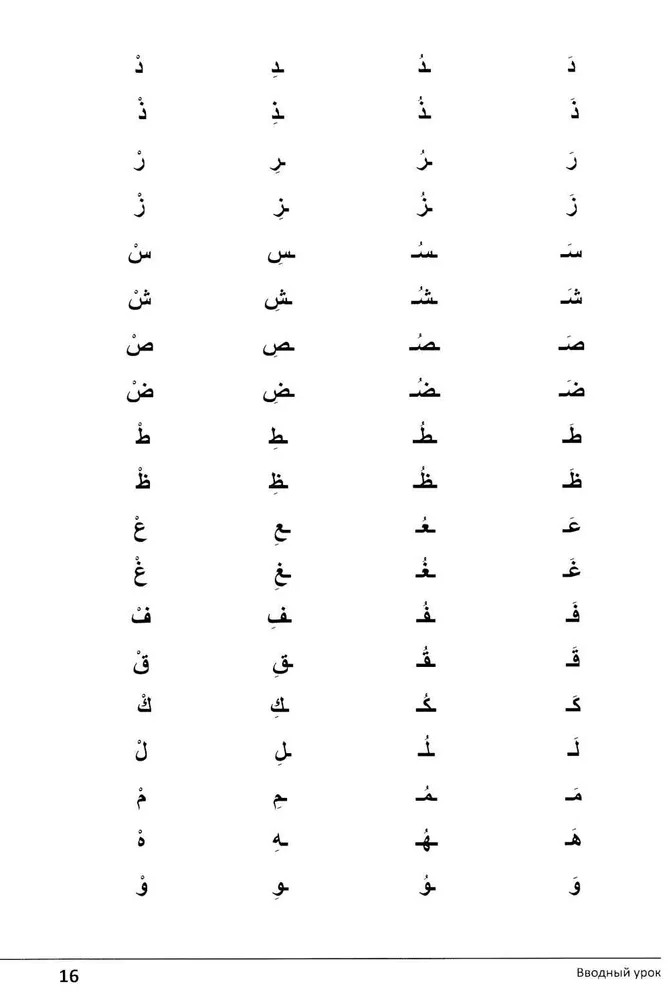 دَ ـدُ ـدِ دْ
ذَ ـذُ ـذِ ذْ
رَ ـرُ ـرِ رْ
زَ ـزُ ـزِ زْ
سَـ ـسُـ ـسِ سْ
شَـ ـشُـ ـشِ شْ
صَـ ـصُـ ـصِ صْ
ضَـ ـضُـ ـضِ ضْ
طَـ ـطُـ ـطِ طْ
ظَـ ـظُـ ـظِ ظْ
عَـ ـعُـ ـعِ عْ
غَـ ـغُـ ـغِ غْ
فَـ ـفُـ ـفِ فْ
قَـ ـقُـ ـقِ قْ
كَـ ـكُـ ـكِ كْ
لَـ ـلُـ ـلِ لْ
مَـ ـمُـ ـمِ مْ
هَـ ـهُـ ـهِ هْ
وَ ـوُ ـوِ وْ
16 Вводный урок